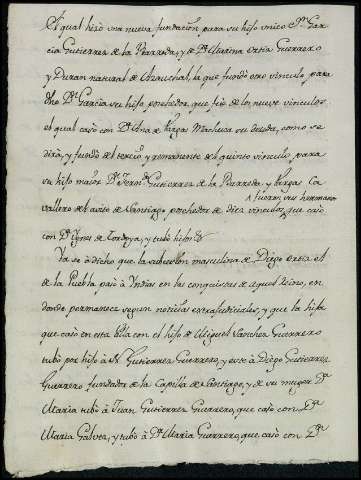 el qual hizo una nueva fundazion para su hijo unico Dn. Gar-
cia Gutierrez de la Barreda, y de Da. Marina Ortiz Guerrero
y Duran natural de Azauchal, la que fundò otro vinculo para
dho Dn. Garcia su hijo pochedor, que fuè de los nueve vinculos
el qual casò con Da. Ana de Vargas Machuca su deuda, como se
dirà, y fundò del tercio, y remanente del quinto vinculo para
su hijo maior Dn. Ferndo. Gutierrez de la Barreda, y Vargas Ca-
fueron sus hermanos
vallero del avito de Santiago pochedor de diez vinculos, que casò
con Da. Ynes de Cordova, y tubò hijos
Ya se à dicho que la subcesion masculina de Diego Ortiz el
de la Puebla pasò à Yndias en las conquistas de aquel Reino, en
donde permanece segun noticias extrajudiciales, y que la hija
que casò en esta Villa con el hijo de Miguel Sanchez Guerrero
tubò por hijo à N. Gutierrez Guerrero, y este à Diego Gutierrez
Guerrero fundador de la Capilla de Santiago, y de su muger Da.
Maria tubò à Juan Gutierrez Guerrero, que casò con Da.
Maria Galvez, y tubò à Da. Maria Guerrero, que casò con Dn.